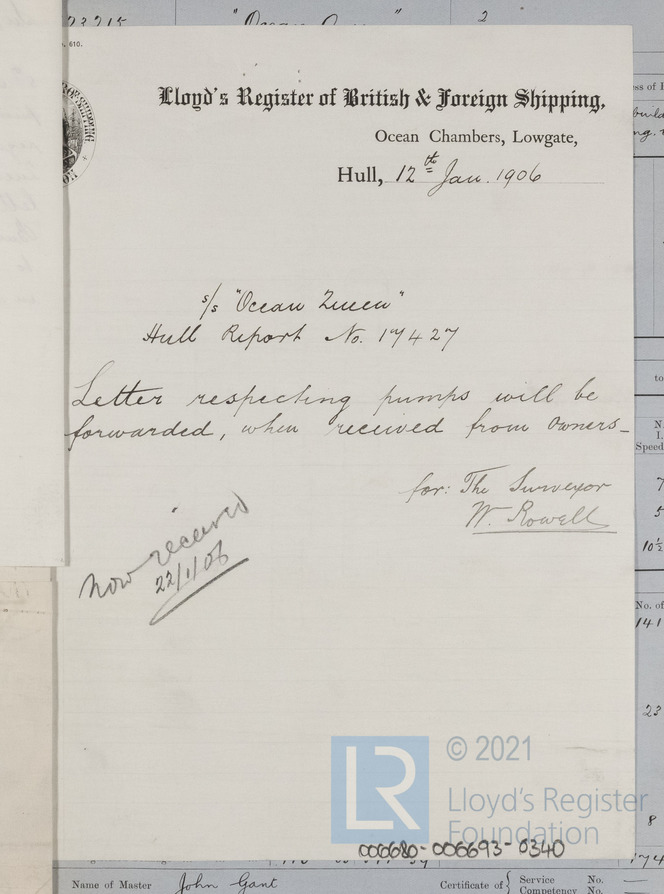 23215 "Ocean Queen" 2
. 610.
Lloyd's Register of British & Foreign Shipping,
Ocean Chambers, Lowgate,
Hull, 12th Jan. 1906
s/s "Ocean Queen"
Hull Report No. 17427
Letter respecting pumps will be
forwarded, when received from Owners_
for: The Surveyor
W. Rowell
now received
22/1/06
to
Speed
10½
No. of
141
23
8
© 2021
LR
Lloyd's Register
Foundation
000680-006693-0340
174
Name of Master John Gant Certificate of { Service No.
Competency No.